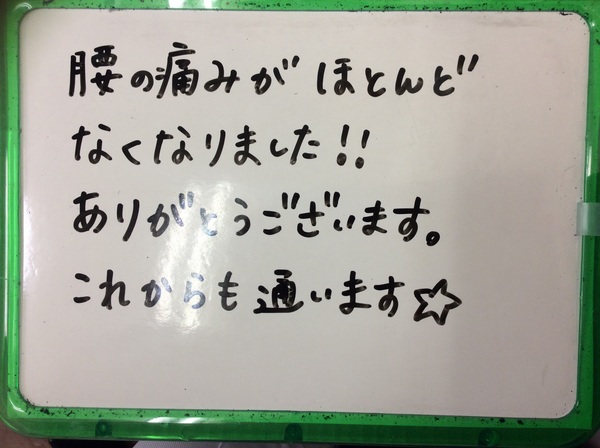 腰の痛みがほとんど
なくなりました!!
ありがとうございます。
これからも通います☆